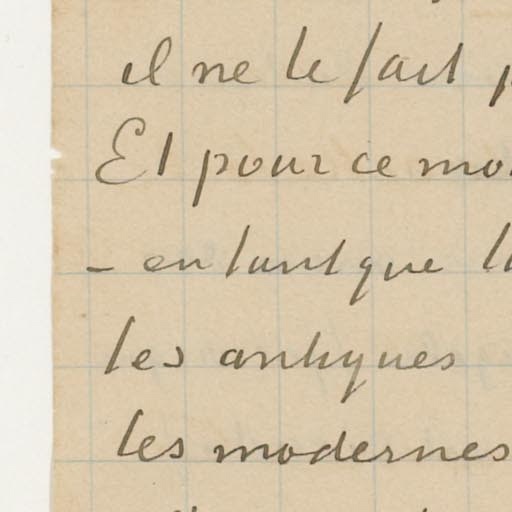 il ne le fait
Et pour ce
- en tant que
les antiques
les modernes